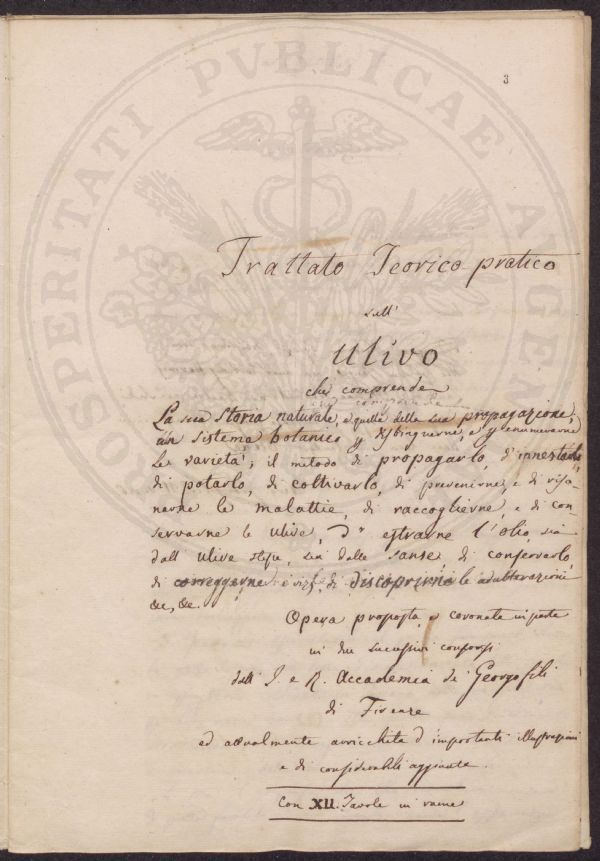 3
PROSPERITATI PVBLICAE AVGENDAE
Trattato Teorico pratico
sull'
Ulivo
che comprende
La sua storia naturale, e quella della sua propagazione,
un sistema botanico p distinguerne, e p enumerarne
le varietà; il metodo di propagarlo, d'innestarlo,
di potarlo, di coltivarlo, di prevenirne, e di risa-
narne le malattie, di raccoglierne, e di con-
servarne le ulive, d' estrarne l'olio, sia
dall' ulive stesse, sia dalle sanse, di conservarlo,
di correggerne i vizj, di discoprirne le adulterazioni
&c, &c.
Opera proposta, e coronata in parte
in due successivi concorsi
dall' I. e R. Accademia de Georgofili
di Firenze
ed attualmente arricchita d'importanti illustrazioni
e di considerabili aggiunte.
Con XII. Tavole in rame